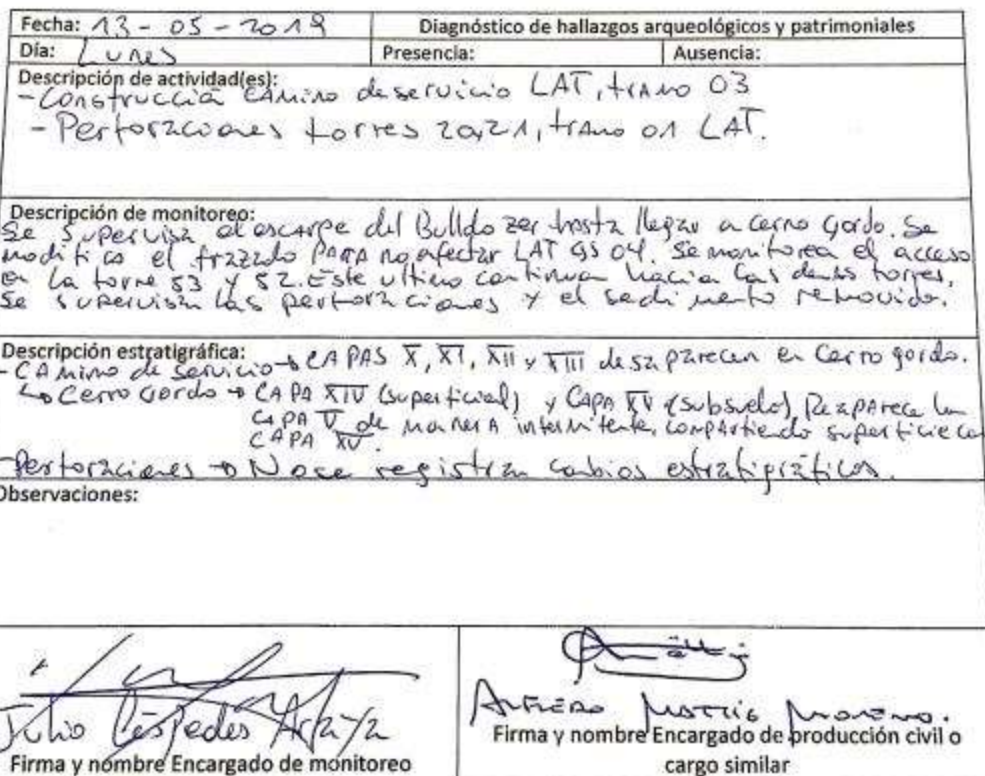 Fecha: 13 - 05 - 2019 Diagnóstico de hallazgos arqueológicos y patrimoniales
Día: Lunes Presencia: Ausencia:
Descripción de actividad(es):
- Construcción camino de servicio LAT, tramo 03
- Perforaciones torres 20,21, tramo 01 LAT.
Descripción de monitoreo:
Se supervisa el escarpe del Bulldozer hasta llegar a cerro gordo. Se
modifica el trazado para no afectar LAT GS 04. Se monitorea el acceso
en la torre 53 y 52. Este ultimo continua hacia las demas torres.
Se supervisan las perforaciones y el sedimento removido.
Descripción estratigráfica:
- Camino de servicio → CAPAS X, XI, XII y XIII desaparecen en Cerro gordo.
↳ Cerro Gordo → CAPA XIV (superficial) y CAPA XV (subsuelo). Reaparece la
CAPA V de manera intermitente, compartiendo superficie con
CAPA XV.
- Perforaciones → No se registran cambios estratigráficos.
Observaciones:
Julio Céspedes Araya
Firma y nombre Encargado de monitoreo
Moreno.
Firma y nombre Encargado de producción civil o
cargo similar